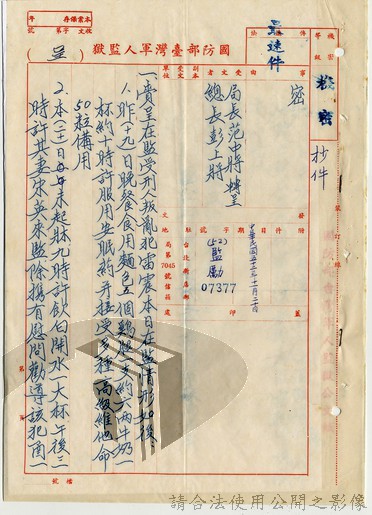 國防部臺灣軍人監獄
(呈)
最速件
機密等級
極密
抄件
密
局長范中將轉呈
總長彭上將
中華民國五三年十一月二十日
(52)監勵
07377
台北新店郵局第7045號信箱
一、肅呈在監受刑叛亂犯雷震本日在監情形如後
1.昨(十九)日晚餐食用麵包五個鷄腿一支(約六兩)牛奶一
杯約十時許服用安眠藥并接受多種高級維他命
50粒備用
2.本(二十)日晨未起牀九時許飲白開水一大杯午後三
時許其妻宋英來監除携有慰問勸導該犯
請合法使用公開之影像